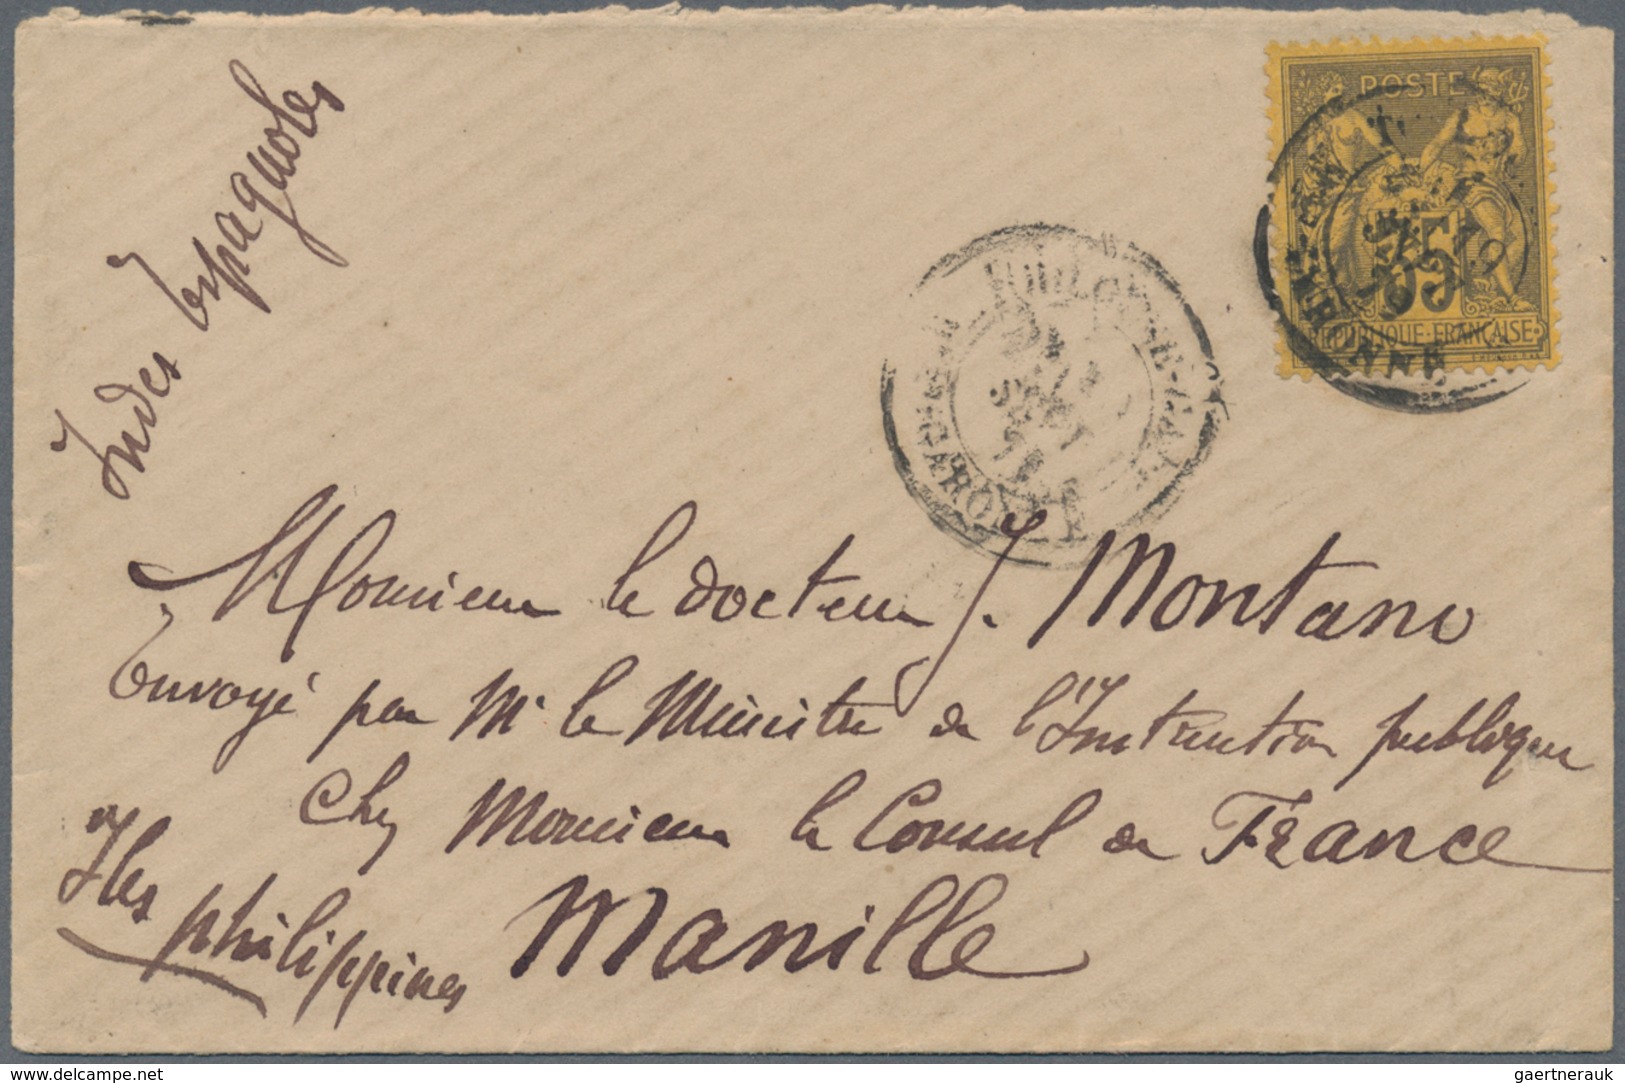 Indes Espagnoles
POSTE
35
REPUBLIQUE FRANÇAISE
Monsieur le docteur J. Montano
Envoyé par Mr le Ministre de l'Instruction publique
Chez Monsieur le Consul de France
Manille
Iles philippines
delcampe.net
gaertnerauk